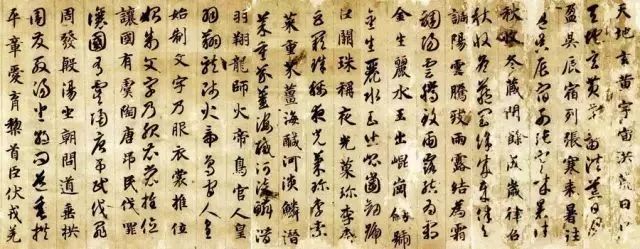 天地玄黄宇宙洪荒日月
天地玄黄宇宙洪荒日月
盈昃辰宿列張寒来暑往
盈昃辰宿列張寒来暑往
秋收冬藏閏餘成歲律吕
秋收冬藏閏餘成歲律吕
調陽雲騰致雨露結為霜
調陽雲騰致雨露結為霜
金生麗水玉出崐崗劒號
金生麗水玉出崐崗劒號
巨闕珠稱夜光菓珍李柰
巨闕珠稱夜光菓珍李柰
菜重芥薑海鹹河淡鱗潜
菜重芥薑海鹹河淡鱗潜
羽翔龍師火帝鳥官人皇
羽翔龍師火帝鳥官人皇
始制文字乃服衣裳推位
始制文字乃服衣裳推位
讓國有虞陶唐弔民伐罪
讓國有虞陶唐弔民伐罪
周發殷湯坐朝問道垂拱
周發殷湯坐朝問道垂拱
平章愛育黎首臣伏戎羌